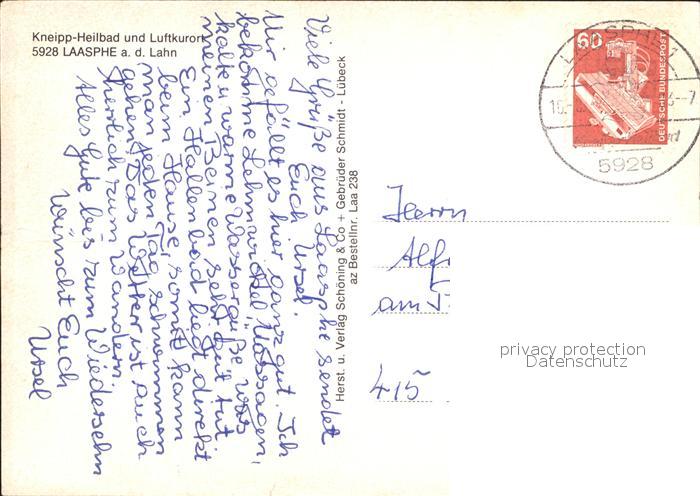 Kneipp-Heilbad und Luftkurort
5928 LAASPHE a. d. Lahn
Viele Grüße aus Laasphe sendet
Euch Ursel.
Mir gefällt es hier ganz gut. Ich
bekomme Lehmwickel, Massagen,
kalte u warme Wassergüße was
meinen Beinen sehr gut tut
Ein Hallenbad liegt direkt
beim Hause, somit kann
man jeden Tag schwimmen
gehen. Das Wetter ist auch
herrlich zum Wandern.
Alles Gute bis zum Wiedersehn
wünscht Euch
Ursel
Herst. u. Verlag Schöning & Co + Gebrüder Schmidt - Lübeck
az Bestellnr. Laa 238
60
DEUTSCHE BUNDESPOST
LAASPHE 1
5928
Herrn
Alf
am
415
privacy protection
Datenschutz